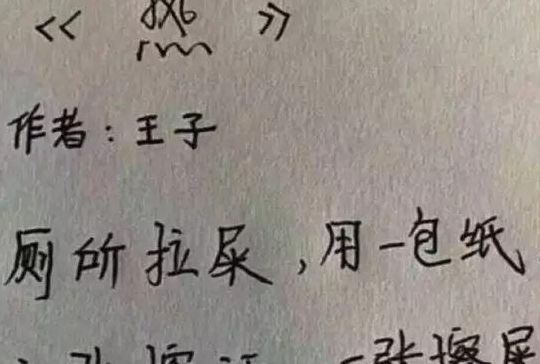 《 》
作者：王子
厕所拉屎，用一包纸
张擦 一张擦屎